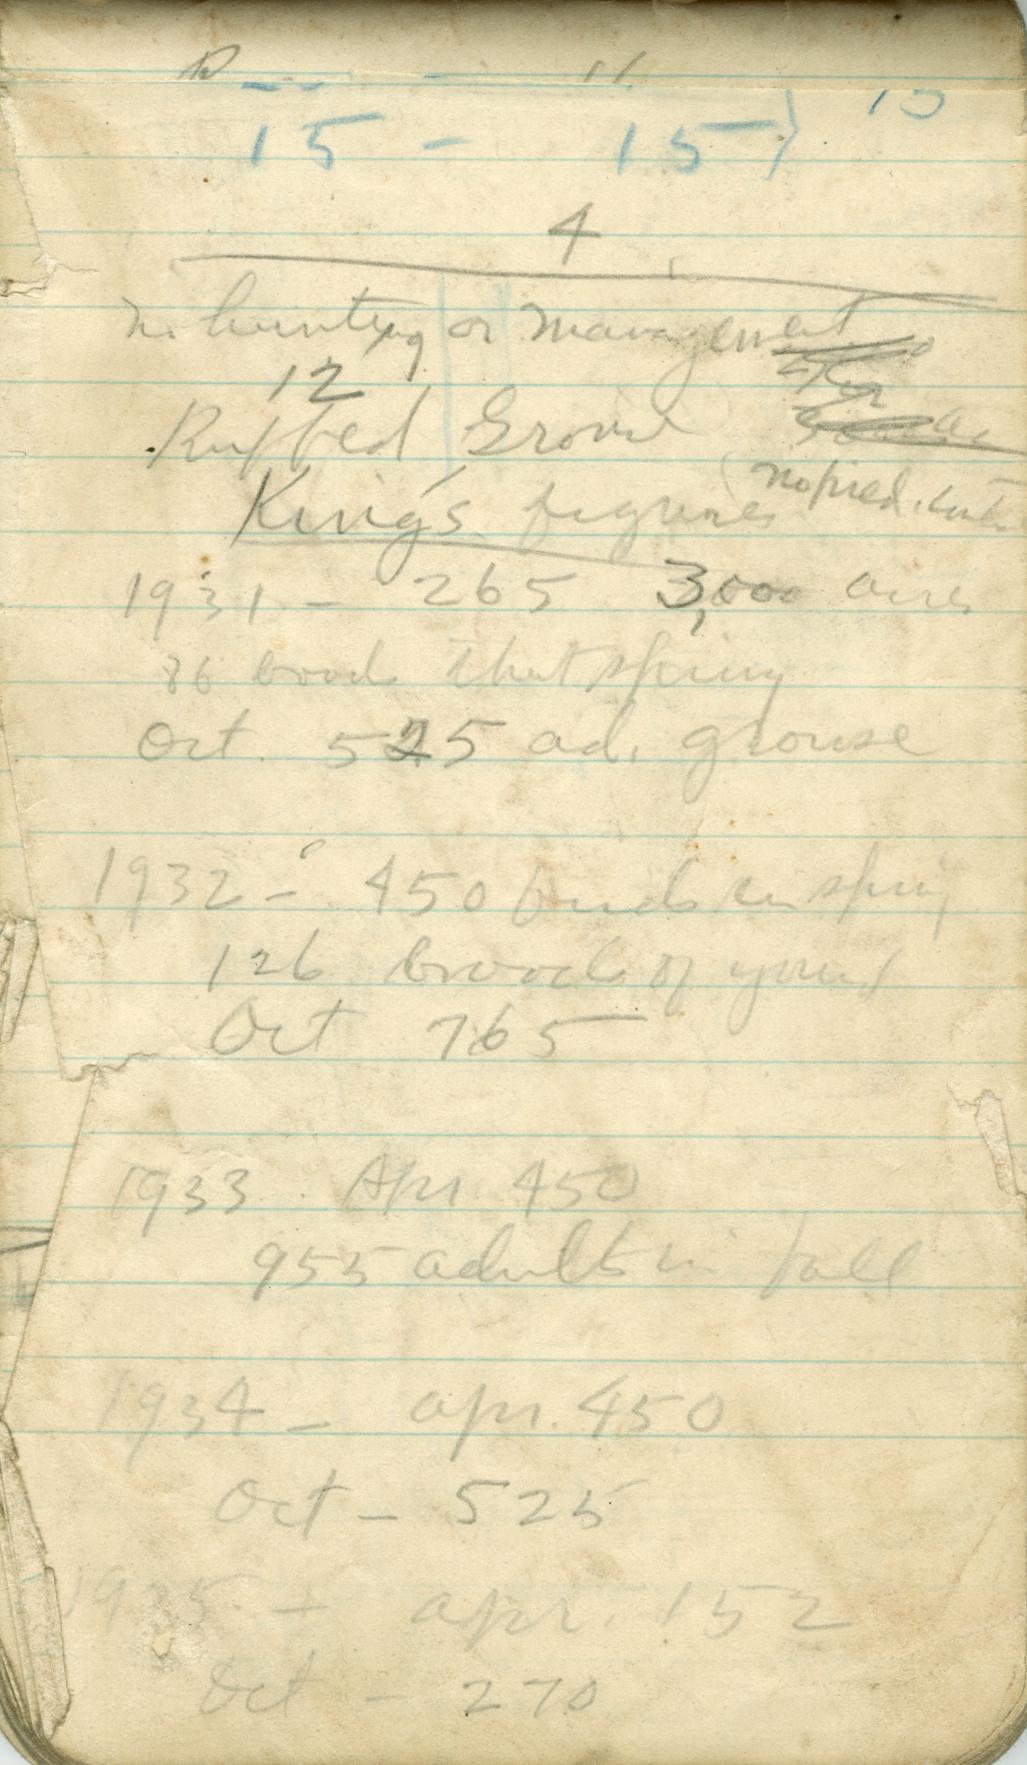 15 - 15} 15
4
No hunting or management
12
Ruffed Grouse
no pred. cont.
King's figures
1931 - 265 3,000 acres
86 broods that spring
Oct 525 ad. grouse
1932 - 450 birds in spring
126 broods of young
Oct 765
1933 Apr. 450
955 adults in fall
1934 - apr. 450
Oct - 525
1935 - apr. 152
Oct - 270